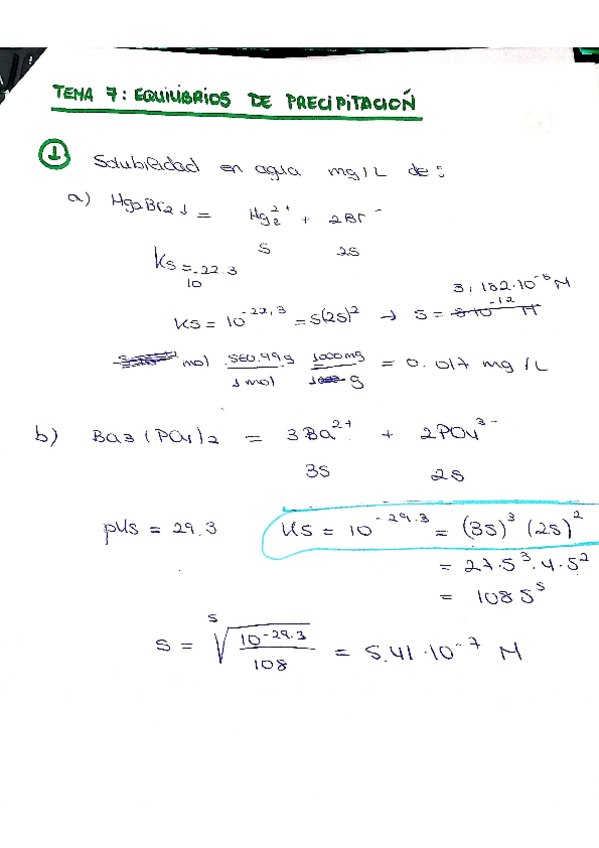 TEMA 7: EQUILIBRIOS DE PRECIPITACIÓN
① Solubilidad en agua mg/L de:
a) Hg2Br2↓ = Hg2²⁺ + 2Br⁻
S 2S
Ks = 10^-22.3
3,152·10⁻⁸ M
Ks = 10^-22,3 = S(2S)² → S =
mol 560.99g / 1 mol 1000mg / g = 0.017 mg/L
b) Ba3(PO4)2 = 3Ba²⁺ + 2PO4³⁻
3S 2S
pKs = 29.3 Ks = 10^-29.3 = (3S)³ (2S)²
= 27·S³·4·S²
= 108 S⁵
S = ⁵√(10^-29.3 / 108) = 5.41·10⁻⁷ M